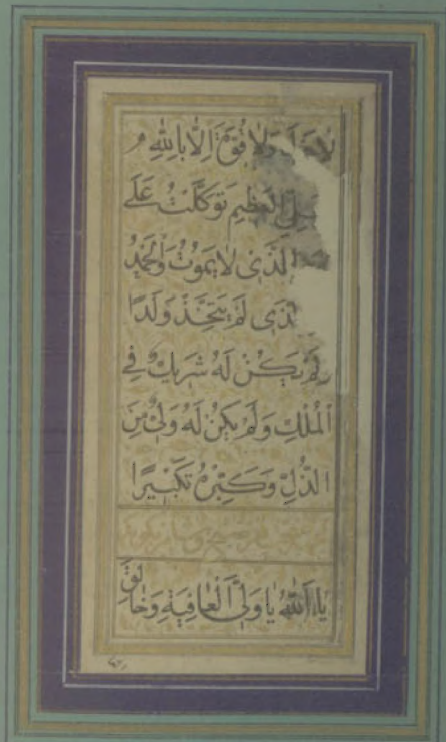 لَا حَوْلَ وَلَا قُوَّةَ اِلَّا بِاللّٰهِ
الْعَظِيمِ تَوَكَّلْتُ عَلَى
الَّذِى لَا يَمُوتُ وَالْحَمْدُ
لَّذِى لَمْ يَتَّخِذْ وَلَدًا
وَلَمْ يَكُنْ لَهُ شَرِيكٌ فِى
الْمُلْكِ وَلَمْ يَكُنْ لَهُ وَلِىٌّ مِنَ
الذُّلِّ وَكَبِّرْهُ تَكْبِيرًا
يَا اَللّٰهُ يَا وَلِىَّ الْعَافِيَةِ وَخَالِقَ